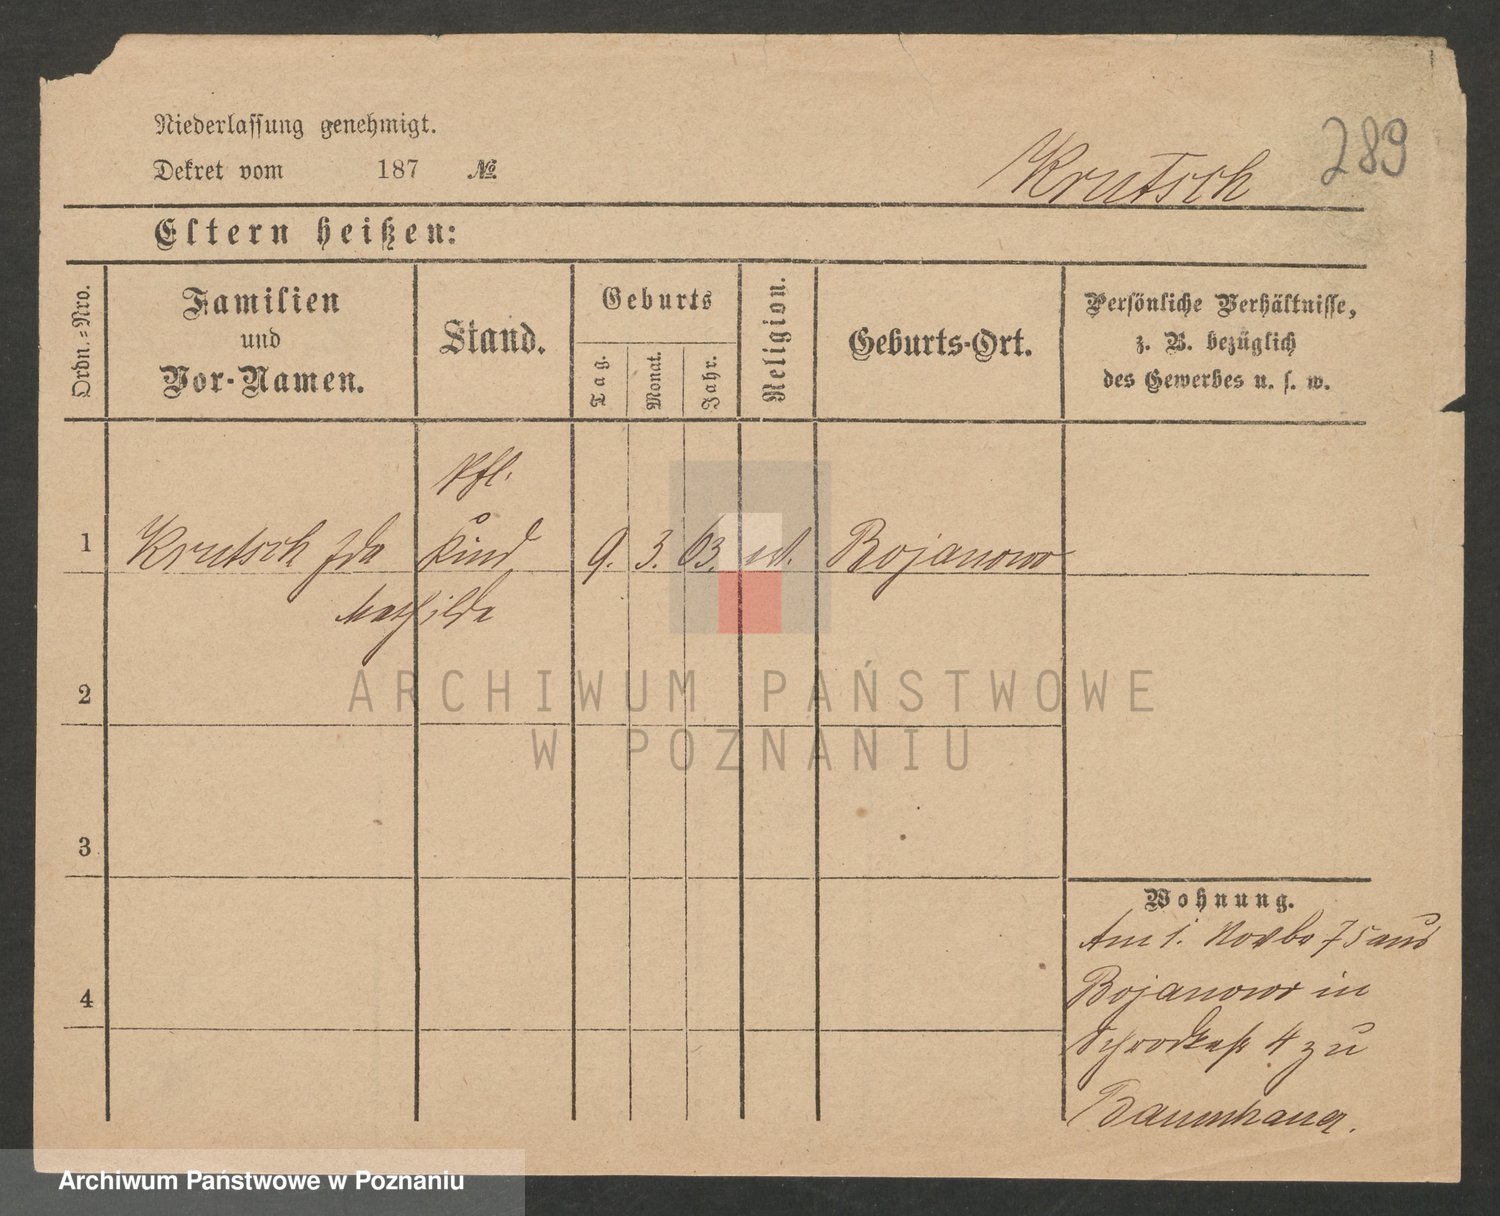 Niederlassung genehmigt.
289
Dekret vom 187 №
Krutsch
Eltern heißen:
Ordn.=Nro.
Familien
und
Vor-Namen.
Stand.
Geburts
Tag.
Monat.
Jahr.
Religion.
Geburts-Ort.
Persönliche Verhältnisse,
z. B. bezüglich
des Gewerbes u. s. w.
Pfl.
1 Krutsch Ida Kind 9. 3. 63. ev. Bojanowo
Mathilde
2
3
4
Wohnung.
Am 1. Novbr 75 aus
Bojanowo in
4 zu
ARCHIWUM PAŃSTWOWE
W POZNANIU
Archiwum Państwowe w Poznaniu